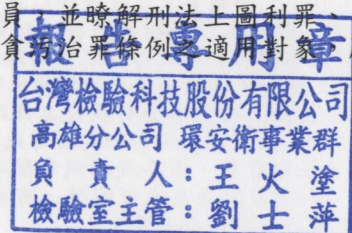 員，並瞭解刑法上圖利罪、
貪污治罪條例之適用對象，
報告專用章
台灣檢驗科技股份有限公司
高雄分公司 環安衛事業群
負責人：王火塗
檢驗室主管：劉士萍